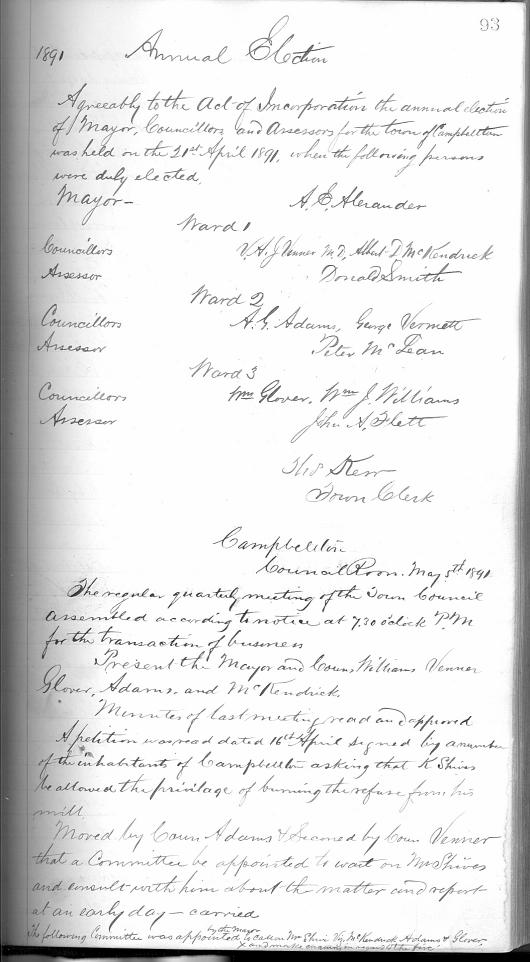 93
1891 Annual Election
Agreeably to the Act of Incorporation the annual election
of Mayor, Councillors, and Assessors for the town of Campbellton
was held on the 21st April 1891, when the following persons
were duly elected.
Mayor - A. E. Alexander
Ward 1
Councillors V. A. J Venner M.D, Albert D McKendrick
Assessor Donald Smith
Ward 2
Councillors A. G. Adams, George Vermett
Assessor Peter McLean
Ward 3
Councillors Wm Glover, Wm J. Williams
Assessor John A. Flett
Thos Kerr
Town Clerk
Campbellton
Council Room. May 5th 1891
The regular quarterly meeting of the Town Council
assembled according to notice at 7.30 oclock P.M
for the transaction of business
Present the Mayor and Couns Williams Venner
Glover, Adams, and McKendrick.
Minutes of last meeting read and approved
A petition was read dated 16th April signed by a number
of the inhabitants of Campbellton asking that K Shives
be allowed the privilage of burning the refuse from his
mill.
Moved by Coun Adams & Seconed by Coun Venner
that a Committee be appointed to wait on Mr Shives
and consult with him about the matter and report
at an early day - carried
by the Mayor
The following Committee was appointed to call on Mr Shives Viz, McKendrick Adams & Glover,
x and make enquiry in regard to the fire